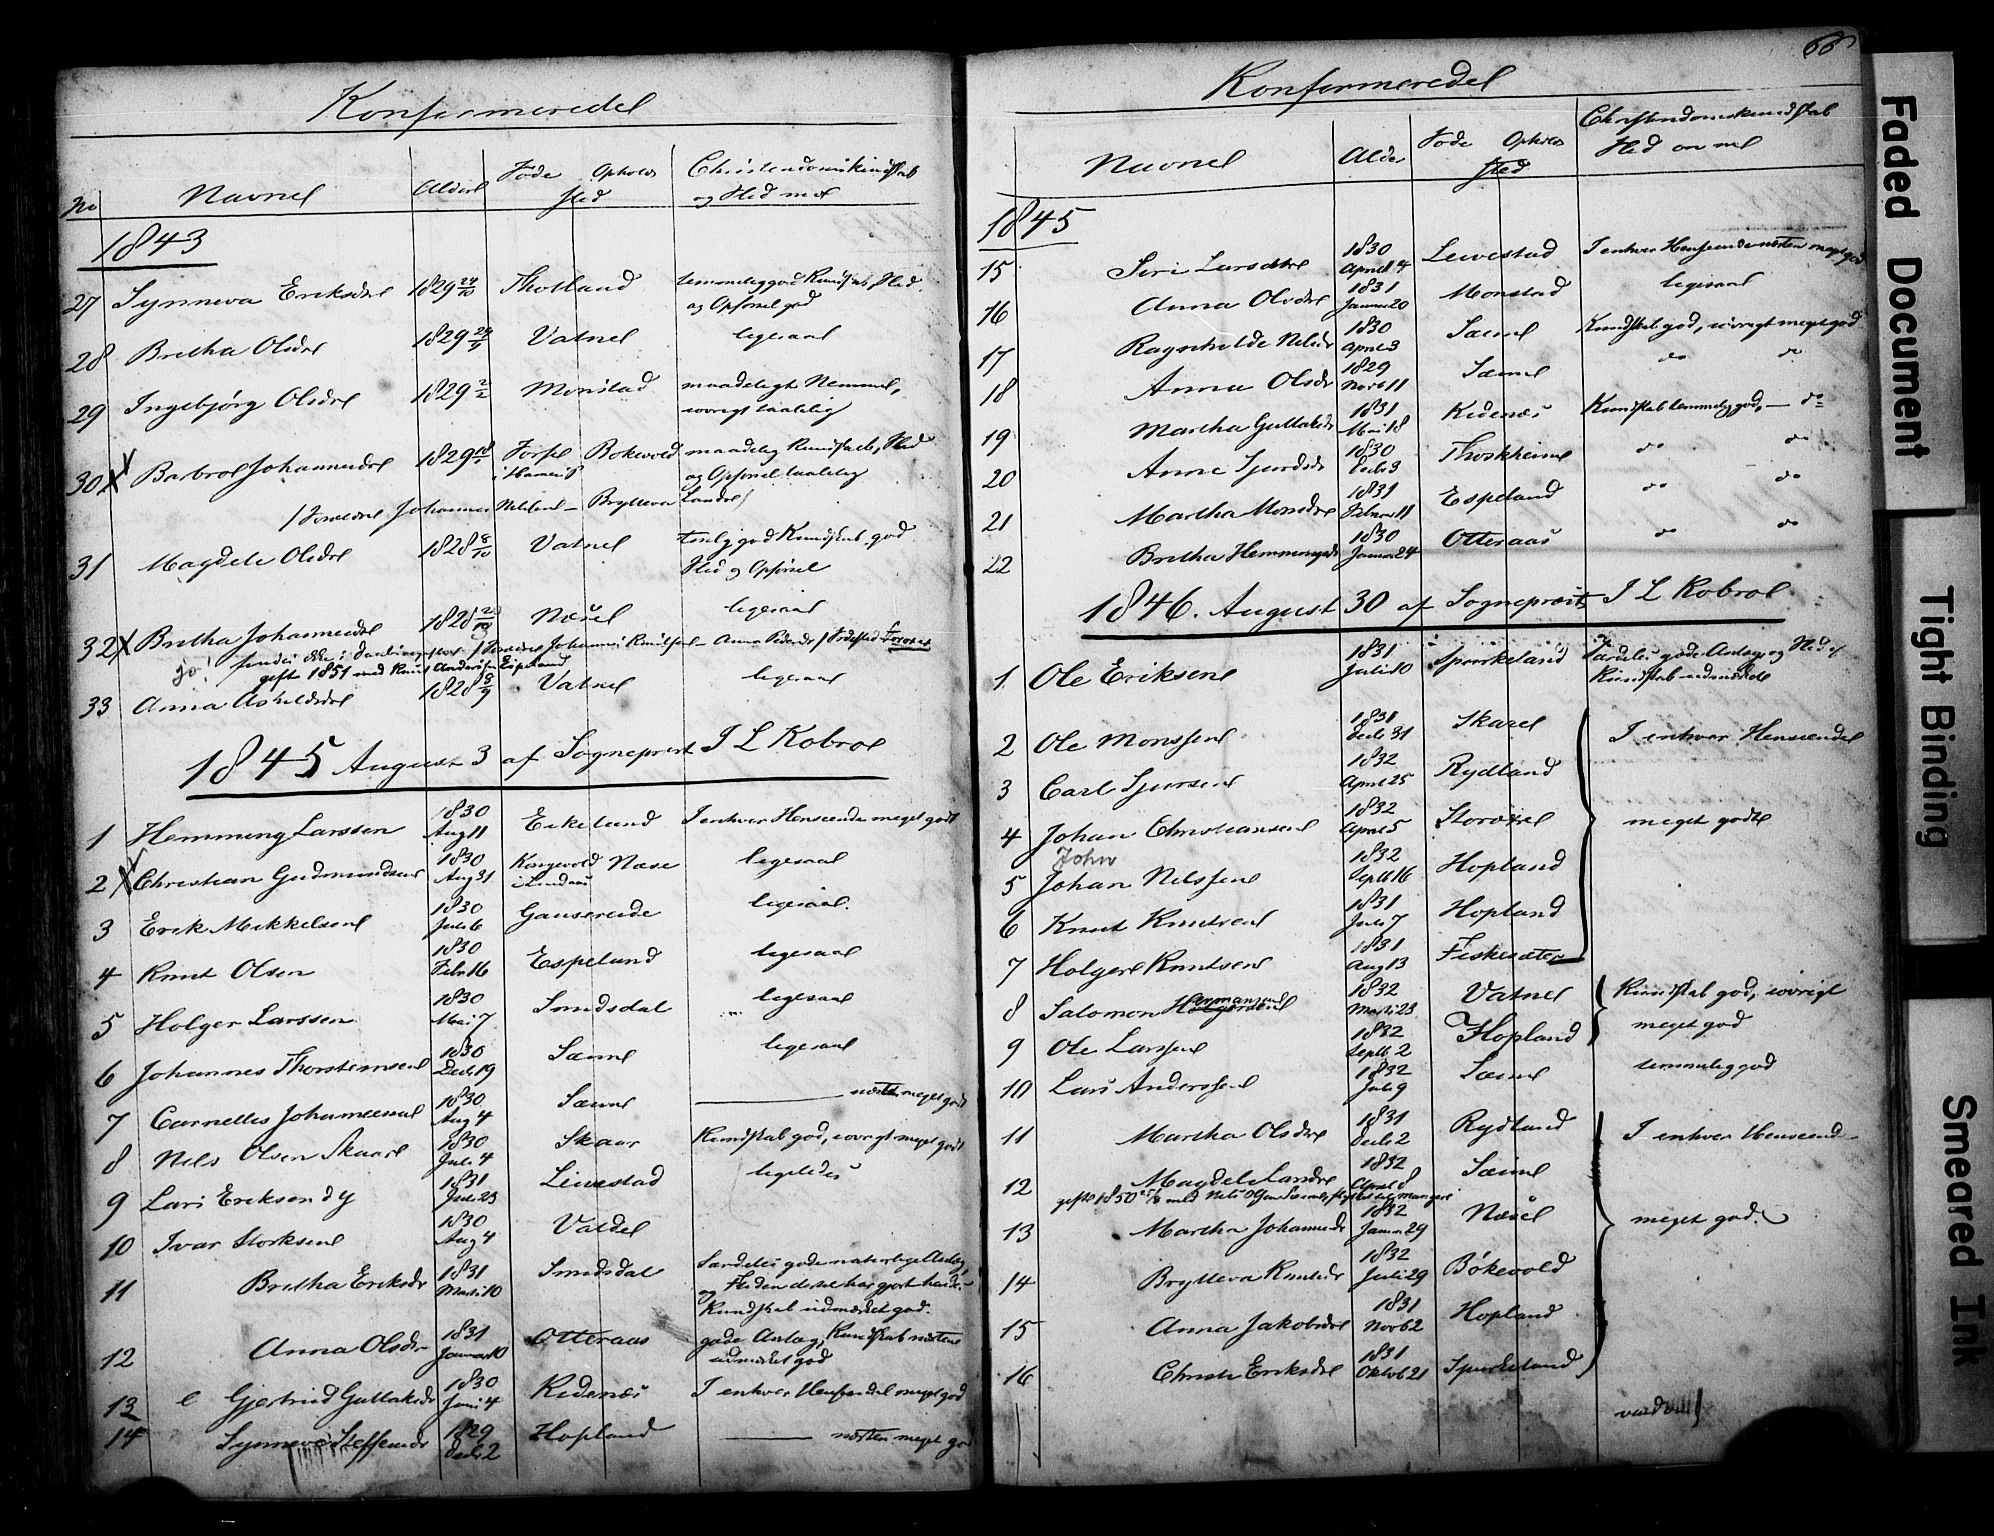 Konfermerede
No Navne Alder Føde Opholds Sted Christendomskundskab og Flid m m
1843
27 Synneva Eriksdtr 1829 24/10 Thotland temmelig god Kundskab, Flid
og Opførsel god
28 Britha Olsdtr 1829 29/9 Vatne ligesaa
29 Ingebjørg Olsdtr 1829 2/2 Monstad maadeligt Nemme,
iøvrigt taalelig
30 Barbroe Johannesdtr 1829 18/ Bøkevold maadelig Kundskab, Flid
i Hammer og Opførsel taalelig
/ Forældre Johannes Nilsen - Brytteva Larsdtr /
31 Magdele Olsdtr 1828 8/10 Vatne god Kundskab, god
Flid og Opførsel
32 Britha Johannesdtr 1828 2/10 Næse ligesaa
jo! findes ikke i / Forældre Johannes Knudsen - Anna Pedersdtr / Fødested
gift 1851 med Knut Andersen Espeland
33 Anna Askeldsdtr 1828 8/9 Vatne ligesaa
1845 August 3 af Sogneprest I L Kobroe
1 Hemming Larssen 1830 Aug 11 Eikelund I enhver Henseende meget godt
2 Christian Gudmundsen 1830 Aug 31 Kongevold i Lindaas Næse ligesaa
3 Erik Mikkelsen 1830 Juli 6 Gausereide ligesaa.
4 Knut Olsen 1830 Febr 16 Espeland ligesaa
5 Holger Larssen 1830 Mai 7 Smidsdal ligesaa
6 Johannes Thorsteinsen 1830 Decb 19 Sæime ligesaa
7 Cornelles Johannessen 1830 Aug 4 Sæime næsten meget godt
8 Nils Olsen Skaar 1830 Juli 4 Skaar Kundskab god, iøvrigt meget godt
9 Lars Eriksen 1831 23 Leivestad ligeledes
10 Ivar Storksen 1830 Aug 4 Valdel
11 Britha Eriksdr 1831 Marts 10 Smidsdal Særdeles gode naturlige Anlæg,
og Fliden
Kundskab udmærket god.
12 Anna Olsdr 1831 Januar 10 Otteraas gode Anlæg, Kundskab næsten
udmærket god
13 Gjertrud Guttaksdr 1830 Juni 4 Kidenæs I enhver Henseende meget god
14 Synneve Steffensdr 1829 Decb 2 Hopland næsten meget god
66
Konfermerede
Navne Alder Føde Opholds Sted Christendomskundskab Flid m m
1845
15 Siri Larsdtr 1830 April 4 Leivestad I enhver Henseende næsten meget god
16 Anna Olsdtr 1831 Januar 20 Monstad ligesaa
17 Ragnhilde Nilsdr 1830 April 3 Sæime Kundskab god, iøvrigt meget god
18 Anna Olsdr 1829 Novb 11 Sæime do do
19 Martha Guttaksdr 1831 Mai 18 Kidenæs Kundskab temmelig god, - do
20 Anne Sjurdsdr 1830 Decb 3 Thoskheim do do
21 Martha Monsdtr 1831 Februar 11 Espeland do do
22 Britha Hemmingsdr 1830 Januar 24 Otteraas do do
1846. August 30 af Sogneprest I L Kobroe
1. Ole Eriksen 1831 Juli 10 Spurkeland Særdeles gode Anlæg og Flid,
Kundskab udmærkede
2 Ole Monssen 1831 Decb 31 Skare I enhver Henseende
3 Carl Sjursen 1832 April 25 Rydland
4 Johan Christiansen 1832 April 5 Storøre meget godt
John
5 Johan Nilssen 1832 Septb 16 Hopland
6 Knut Knutsen 1831 Juli 7 Hopland
7 Holger Knutsen 1831 Aug 13 Fiskesæter
8 Salomon Hermansen 1832 Marts 23 Vatne Kundskab god, iøvrigt
9 Ole Larssen 1832 Septb 2 Hopland meget god
10 Lars Anderssen 1832 Juli 9 Sæime temmelig god
11 Martha Olsdtr 1831 Decb 2 Rydland I enhver Henseende
12 Magdele Larsdtr 1832 April 8 Sæime
gift 1850 med Nils Olsen Sæim,
13 Martha Johannesdr 1832 Januar 29 Næse meget god.
14 Brytteva Knutsdr 1832 Juli 29 Bøkevold
15 Anna Jakobsdtr 1831 Novb 2 Hopland
16 Christi Eriksdtr 1831 Oktob 21 Spurkeland
Faded Document
Tight Binding
Smeared Ink